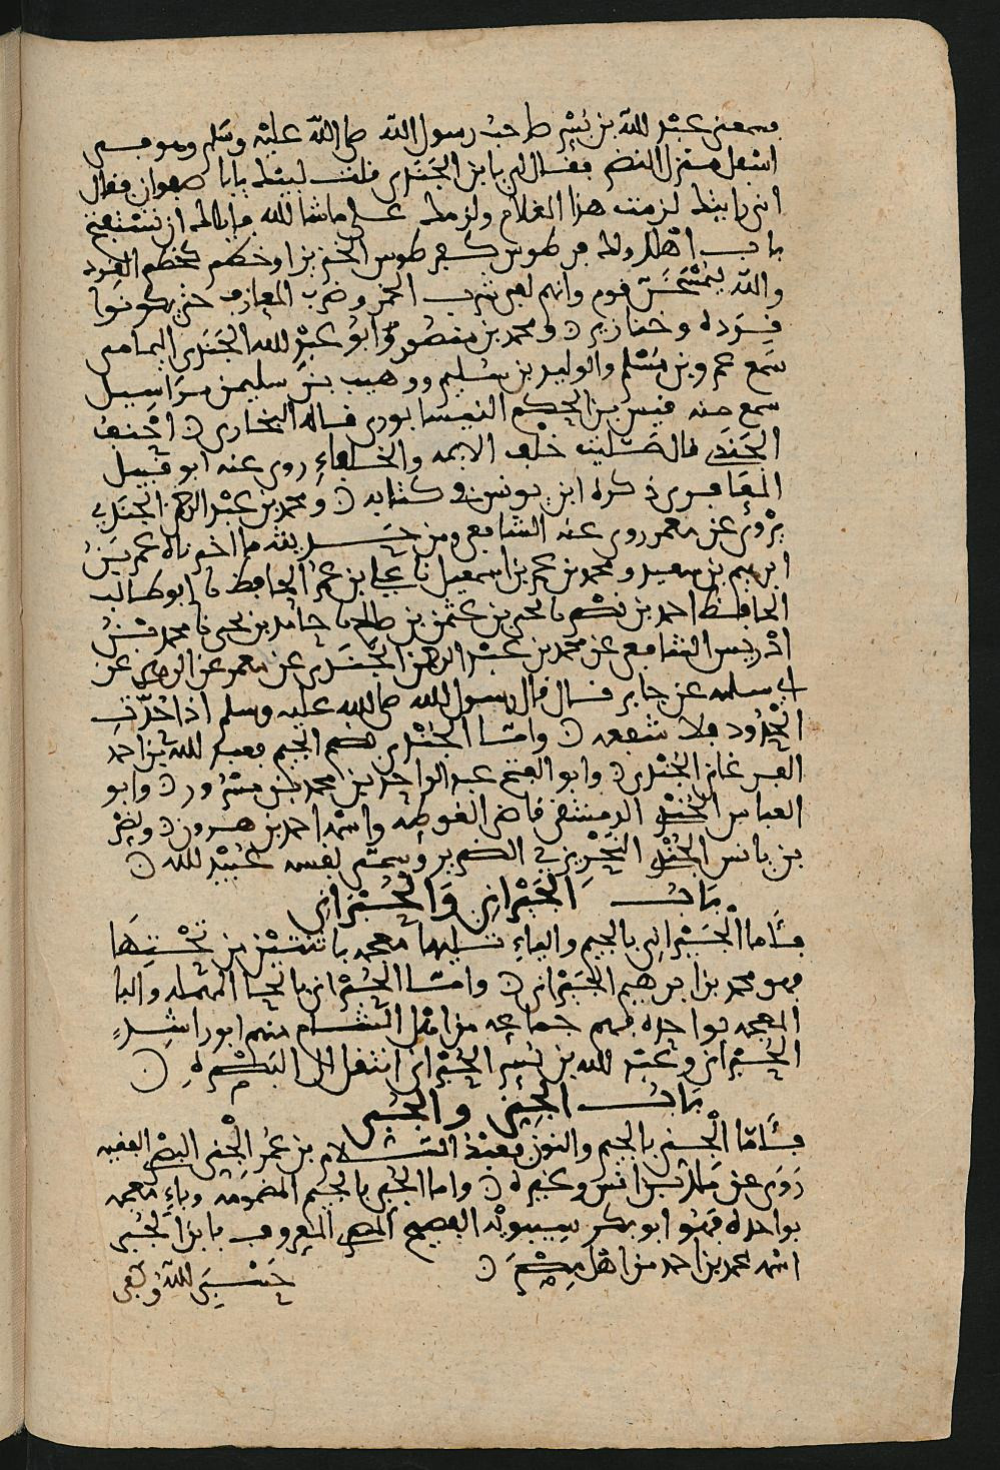 فسمعني عبد الله بن بسر صاحب رسول الله صلى الله عليه وسلم وهو في
اسفل منزل النضر فقال لي يا بن الجندي فقلت لبيك يابا صفوان فقال
اني رايتك لزمت هذا الغلام ولزمك على ما شا الله فاياك ان
باب والله
والله ليمسخن قوم وانهم لفي شرب الخمر وضرب المعازف حتى يكونوا
قردة وخنازير ومحمد بن منصور ابو عبد الله الجندي اليمامي
سمع عمرو بن مسلم والوليد بن سليم ووهيب بن سليمن مراسيل
سمع منه قيس بن الحكم النيسابوري قاله البخاري
الجندي قال صليت خلف الايمه والخلفاء روى عنه ابو قبيل
المعافري ذكره ابن يونس في كتابه ومحمد بن عبد الرحمن الجندي
يروي عن معمر روى عنه الشافعي ومن حديثه ما اخبرناه عمر بن
ابرهيم بن سعيد ومحمد بن عمر بن اسمعيل نا علي بن عمر الحافظ نا ابو طالب
الحافظ احمد بن نصر نا يحيى بن عثمن بن صالح نا حامد بن يحيى نا محمد بن
ادريس الشافعي عن محمد بن عبد الرحمن الجندي عن معمر عن الزهري عن
ابي سلمه عن جابر قال قال رسول الله صلى الله عليه وسلم اذا حدت
الحدود فلا شفعه واما الجندي بضم الجيم فعبد الله بن احمد
الجندي وابو الفتح عبد الواحد بن محمد بن مسرور وابو
العباس الجندي الدمشقي قاضي الغوطه واسمه احمد بن هرون ونصر
بن يانس الجندي الضرير وسمى نفسه عبيد الله
باب الجيراني والحبراني
فاما الجيراني بالجيم والياء تليها معجمه باثنتين من تحتها
فهو محمد بن ابرهيم الجيراني واما الحبراني بالحا المهمله والبا
المعجمه بواحده فهم جماعه من اهل الشام منهم ابو راشد
الحبراني وعبد الله بن بسر الحبراني انتقل الى البصره
باب الجني والجبي
فاما الجني بالجيم والنون فعبد السلام بن عمر الجني البصري الفقيه
روى عن ملك بن انس وغيره واما الجبي بالجيم المضمومه وباء معجمه
بواحده فهو ابو بكر سيبويه الفصيح المصري المعروف بابن الجبي
اسمه محمد بن احمد من اهل مصر
حسبي الله وكفى